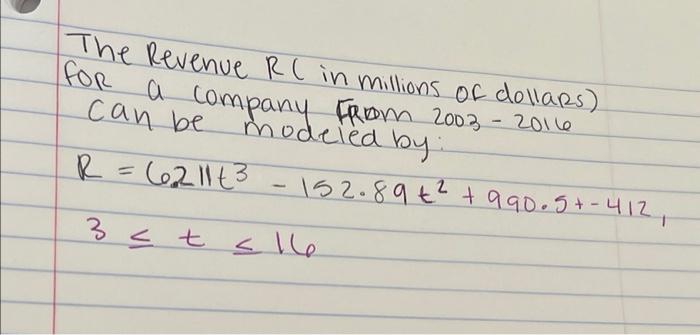 The Revenue R (in millions of dollars)
for a company From 2003 - 2016
can be modeled by:
R = 6.211t³ - 152.89t² + 990.5t - 412,
3 ≤ t ≤ 16